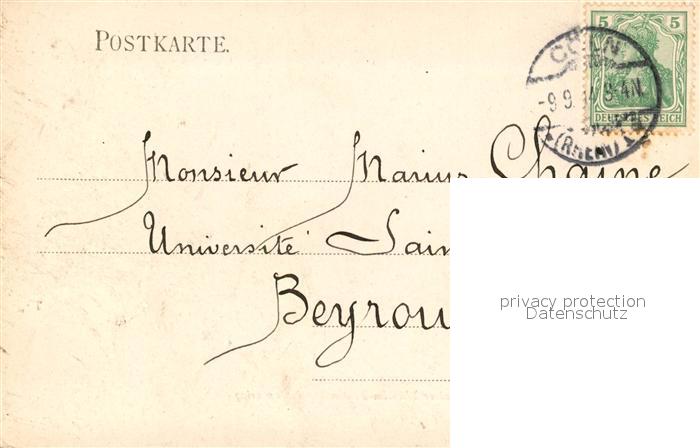 POSTKARTE.
5 5
DEUTSCHES REICH
CÖLN
(RHEIN)
Monsieur Marius Chaine
Université Sain
Beyrou
privacy protection
Datenschutz